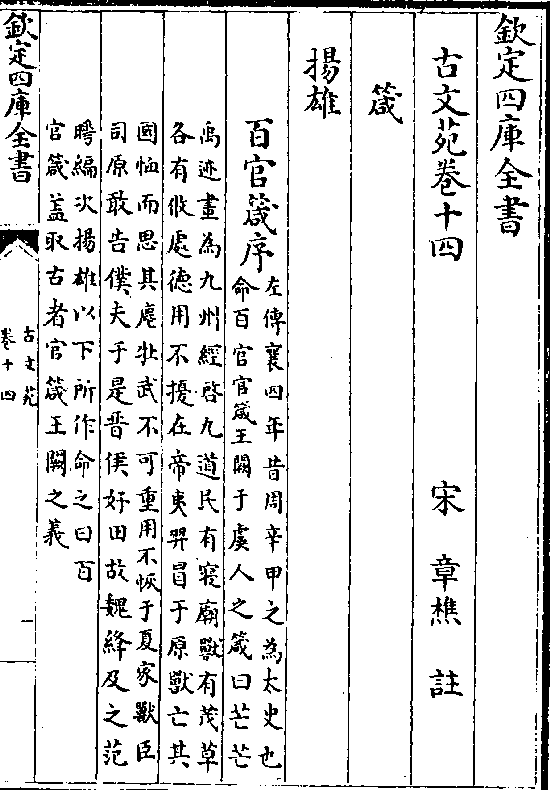 欽定四庫全書
古文苑卷十四　宋　章樵　註
箴
揚雄
百官箴序
左傳襄四年昔周辛甲之為太史也
命百官官箴王闕于虞人之箴曰芒芒
禹迹畫為九州經啓九道民有寢廟獸有茂草
各有攸處德用不擾在帝夷羿冒于原獸亡其
國恤而思其麀牡武不可重用不恢于夏家獸臣
司原敢告僕夫于是晉侯好田故魏絳及之范
曄編次揚雄以下所作命之曰百
官箴蓋取古者官箴王闕之義
欽定四庫全書
古文苑
卷十四
一